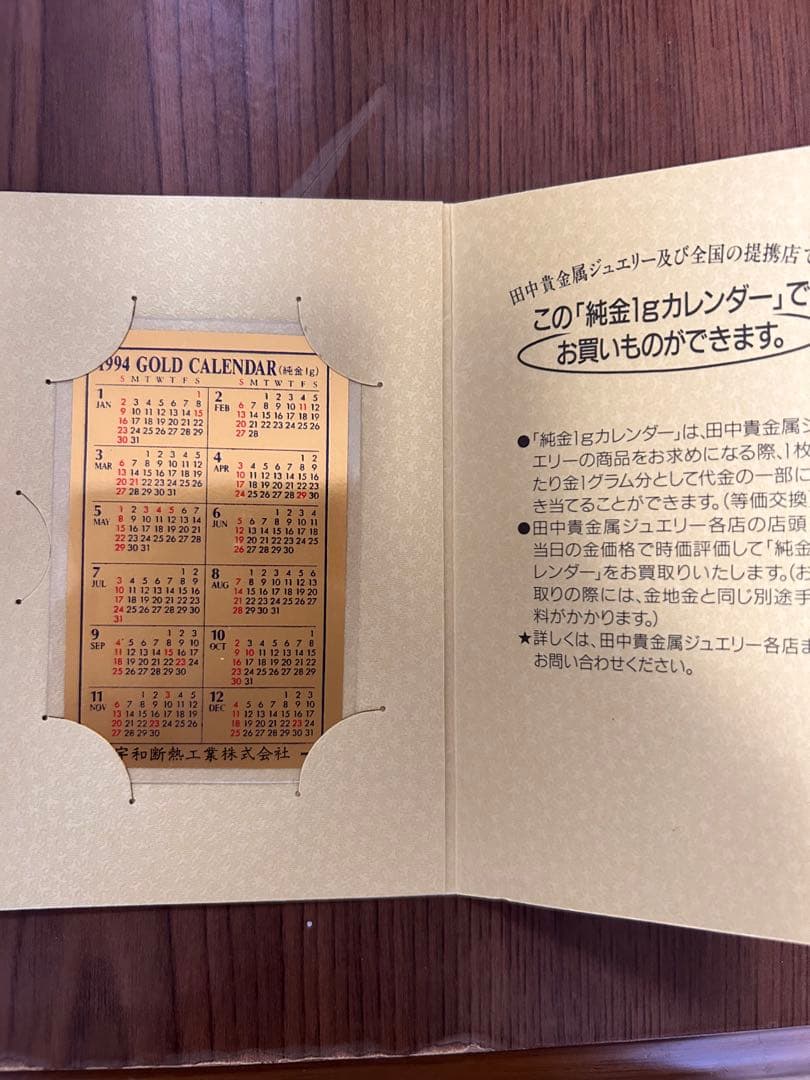 1994 GOLD CALENDAR(純金1g)
S M T W T F S S M T W T F S
1 JAN
1
2 3 4 5 6 7 8
9 10 11 12 13 14 15
16 17 18 19 20 21 22
23 24 25 26 27 28 29
30 31
2 FEB
1 2 3 4 5
6 7 8 9 10 11 12
13 14 15 16 17 18 19
20 21 22 23 24 25 26
27 28
3 MAR
1 2 3 4 5
6 7 8 9 10 11 12
13 14 15 16 17 18 19
20 21 22 23 24 25 26
27 28 29 30 31
4 APR
1 2
3 4 5 6 7 8 9
10 11 12 13 14 15 16
17 18 19 20 21 22 23
24 25 26 27 28 29 30
5 MAY
1 2 3 4 5 6 7
8 9 10 11 12 13 14
15 16 17 18 19 20 21
22 23 24 25 26 27 28
29 30 31
6 JUN
1 2 3 4
5 6 7 8 9 10 11
12 13 14 15 16 17 18
19 20 21 22 23 24 25
26 27 28 29 30
7 JUL
1 2
3 4 5 6 7 8 9
10 11 12 13 14 15 16
17 18 19 20 21 22 23
24 25 26 27 28 29 30
31
8 AUG
1 2 3 4 5 6
7 8 9 10 11 12 13
14 15 16 17 18 19 20
21 22 23 24 25 26 27
28 29 30 31
9 SEP
1 2 3
4 5 6 7 8 9 10
11 12 13 14 15 16 17
18 19 20 21 22 23 24
25 26 27 28 29 30
10 OCT
1
2 3 4 5 6 7 8
9 10 11 12 13 14 15
16 17 18 19 20 21 22
23 24 25 26 27 28 29
30 31
11 NOV
1 2 3 4 5
6 7 8 9 10 11 12
13 14 15 16 17 18 19
20 21 22 23 24 25 26
27 28 29 30
12 DEC
1 2 3
4 5 6 7 8 9 10
11 12 13 14 15 16 17
18 19 20 21 22 23 24
25 26 27 28 29 30 31
宇和断熱工業株式会社
田中貴金属ジュエリー及び全国の提携店で
この「純金1gカレンダー」で
お買いものができます。
●「純金1gカレンダー」は、田中貴金属ジ
エリーの商品をお求めになる際、1枚
たり金1グラム分として代金の一部に
き当てることができます。(等価交換
●田中貴金属ジュエリー各店の店頭
当日の金価格で時価評価して「純金
レンダー」をお買取りいたします。(お
取りの際には、金地金と同じ別途手
料がかかります。)
★詳しくは、田中貴金属ジュエリー各店ま
お問い合わせください。